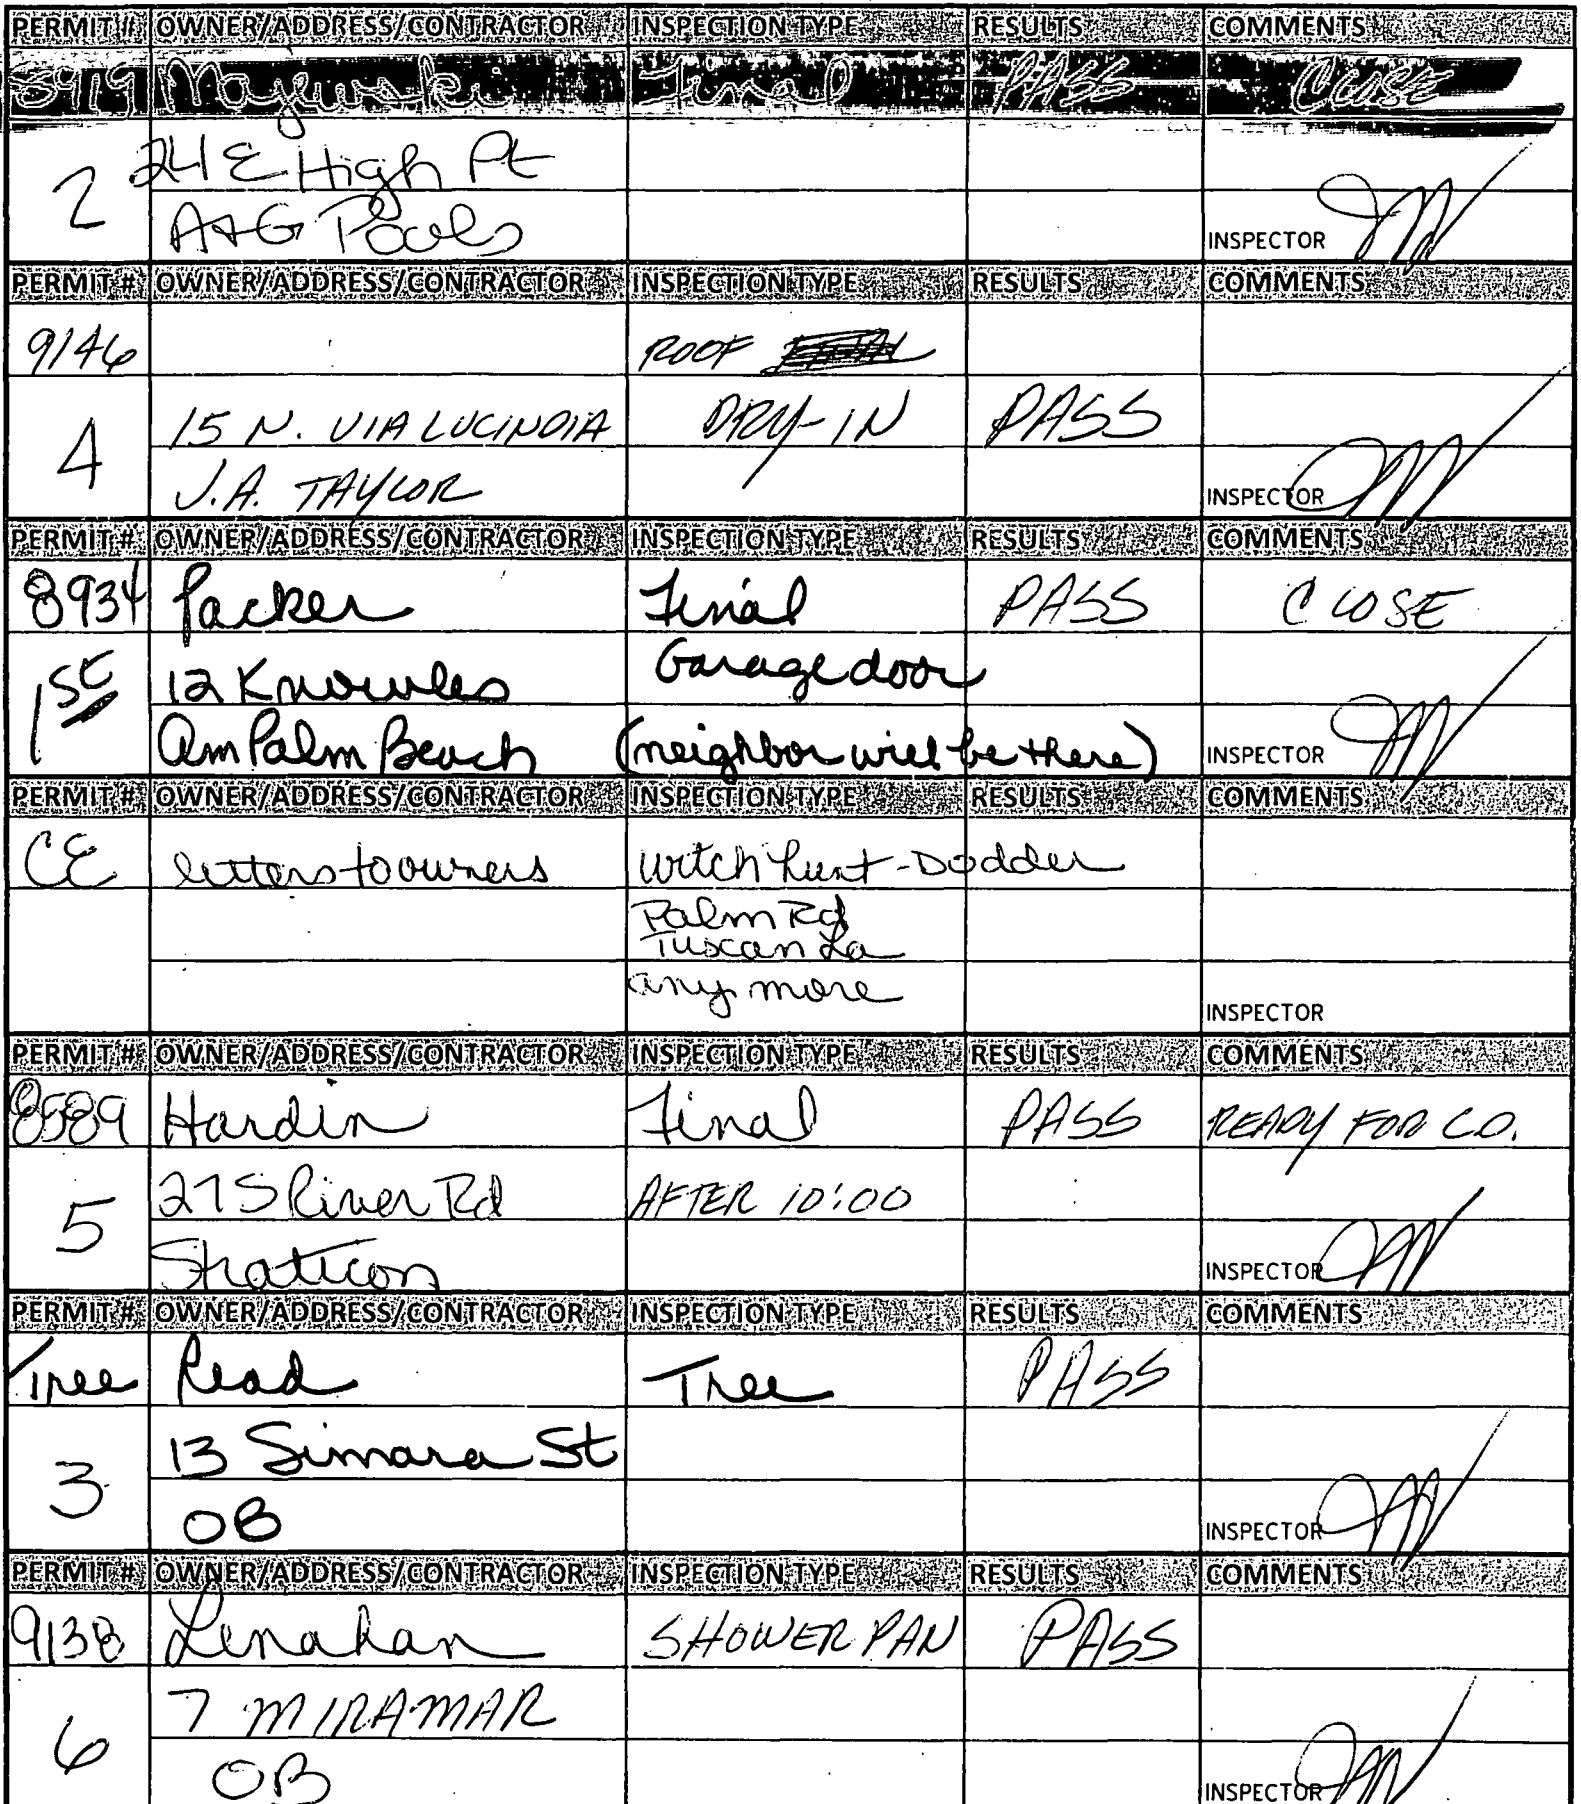 PERMIT # OWNER/ADDRESS/CONTRACTOR INSPECTION TYPE RESULTS COMMENTS
Majewski Final PASS CLOSE
2 24 E High Pt
A+G Pools INSPECTOR
PERMIT # OWNER/ADDRESS/CONTRACTOR INSPECTION TYPE RESULTS COMMENTS
9146 ROOF
4 15 N. VIA LUCINDIA DRY-IN PASS
J.A. TAYLOR INSPECTOR
PERMIT # OWNER/ADDRESS/CONTRACTOR INSPECTION TYPE RESULTS COMMENTS
8934 Packer Final PASS CLOSE
1st 12 Knowles Garage door
Am Palm Beach (neighbor will be there) INSPECTOR
PERMIT # OWNER/ADDRESS/CONTRACTOR INSPECTION TYPE RESULTS COMMENTS
CE letters to owners witch hunt - Dodder
Palm Rd
Tuscan La
any more INSPECTOR
PERMIT # OWNER/ADDRESS/CONTRACTOR INSPECTION TYPE RESULTS COMMENTS
8589 Hardin Final PASS READY FOR C.O.
5 27 S River Rd AFTER 10:00
Straticon INSPECTOR
PERMIT # OWNER/ADDRESS/CONTRACTOR INSPECTION TYPE RESULTS COMMENTS
Tree Read Tree PASS
3 13 Simara St
OB INSPECTOR
PERMIT # OWNER/ADDRESS/CONTRACTOR INSPECTION TYPE RESULTS COMMENTS
9138 Lenahan SHOWER PAN PASS
6 7 MIRAMAR
OB INSPECTOR